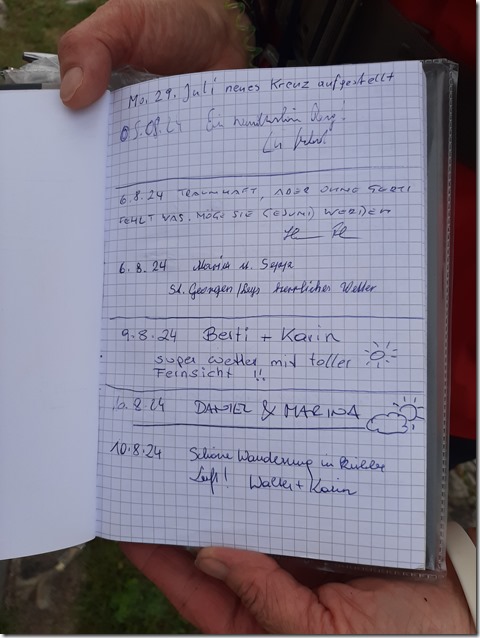 Mo. 29. Juli neues Kreuz aufgestellt
05.08.24 Ein wunderschön Berg!
6.8.24 TRAUMHAFT, ABER OHNE GERTI
FEHLT WAS. MÖGE SIE GESUND WERDEN
6.8.24 Maria u. Sepp
St. Georgen herrliches Wetter
9.8.24 Berti + Karin
super Wetter mit toller
Fernsicht !!
10.8.24 DANIEL & MARINA
10.8.24 Schöne Wanderung in
Luft! Walter + Karin